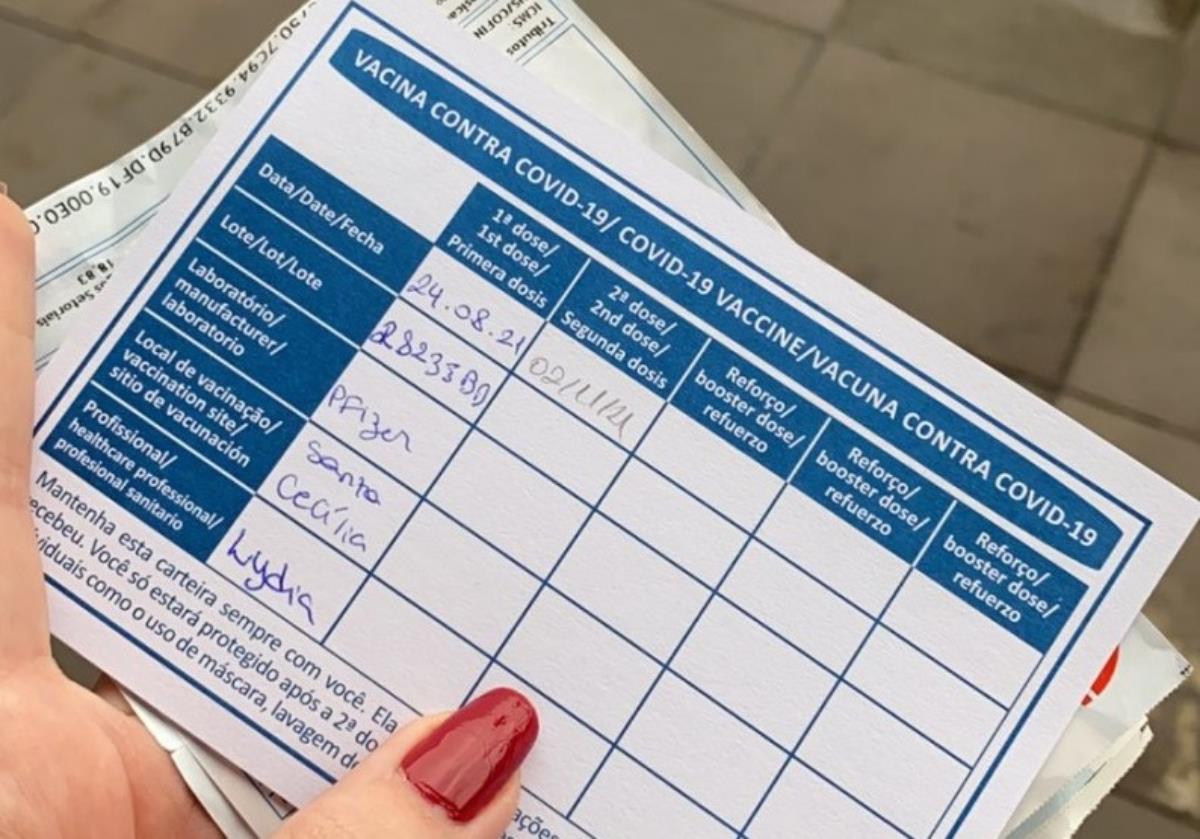 Tributos
ICMS:
IS/COFIN
750.7C94.9332.B79D.DF19.00E0.0
18,83
us Setoriais
VACINA CONTRA COVID-19/ COVID-19 VACCINE/VACUNA CONTRA COVID-19
1ª dose/
1st dose/
Primera dosis
2ª dose/
2nd dose/
Segunda dosis
Reforço/
booster dose/
refuerzo
Reforço/
booster dose/
refuerzo
Reforço/
booster dose/
refuerzo
Data/Date/Fecha
24.08.21
02/11/21
Lote/Lot/Lote
Laboratório/
manufacturer/
laboratorio
Pfizer
Local de vacinação/
vaccination site/
sitio de vacunación
Santa
Cecília
Profissional/
healthcare professional/
profesional sanitario
Lydia
Mantenha esta carteira sempre com você. Ela
ecebeu. Você só estará protegido após a 2ª do
ividuais como o uso de máscara, lavagem de
ações